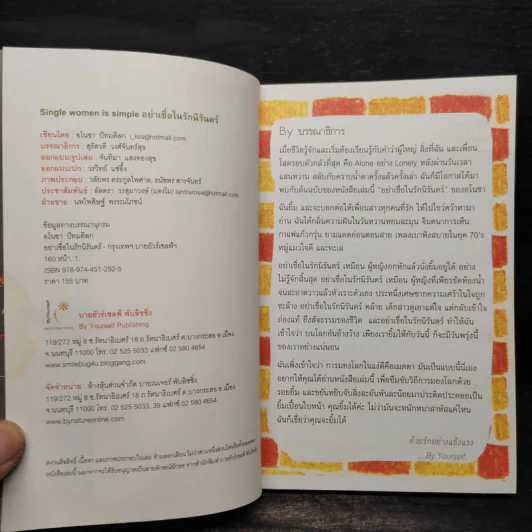 Single women is simple อย่าเชื่อในรักนิรันดร์
เขียนโดย : อโนชา ปัทมดิลก i_isis@hotmail.com
บรรณาธิการ : สุรัสวดี วงศ์จันทร์สุข
ออกแบบรูปเล่ม : จันทิมา แสงทองสุข
ออกแบบปก : วรวิทย์ แซ่อึ้ง
ข้อมูลทางบรรณานุกรม
อโนชา ปัทมดิลก
อย่าเชื่อในรักนิรันดร์ - กรุงเทพฯ บายยัวร์เซลฟ์ฯ
160 หน้า. 1.
ISBN 978-974-451-292-5
ราคา 155 บาท
ByYourself
บายยัวร์เซลฟ์ พับลิชชิ่ง
By Yourself Publishing
119/272 หมู่ 8 ซ.รัตนาธิเบศร์ 18 ถ.รัตนาธิเบศร์ ต.บางกระสอ อ.เมือง
จ.นนทบุรี 11000 โทร. 02 525 5033 แฟกซ์ 02 580 4654
www.smilebug4u.bloggang.com
จัดจำหน่าย : ห้างหุ้นส่วนจำกัด บายเนเจอร์ พับลิชชิ่ง
119/272 หมู่ 8 ซ.รัตนาธิเบศร์ 18 ถ.รัตนาธิเบศร์ ต.บางกระสอ อ.เมือง
จ.นนทบุรี 11000 โทร. 02 525 5033, 39 แฟกซ์ 02 580 4654
www.bynatureonline.com
By บรรณาธิการ
เมื่อชีวิตรู้จักและเริ่มต้องเรียนรู้กับคำว่าผู้ใหญ่ สิ่งที่ฉัน และเพื่อน
โสดรอบตัวกลัวที่สุด คือ Alone อย่าง Lonely หลังผ่านวันเวลา
แสนหวาน สลับกับคราบน้ำตาครั้งแล้วครั้งเล่า ฉันก็มีโอกาสได้มา
พบกับต้นฉบับของหนังสือเล่มนี้ "อย่าเชื่อในรักนิรันดร์" ของอโนชา
อ่าน ฉันได้กลิ่นความฝันในวันหวานหอมละมุน จินตนาการเห็น
กาแฟแก้วกรุ่น ยามแดดอ่อนตอนสาย เพลงเบาฟังสบายในยุค 70's
หมู่แมวใจดี และทะเล
อย่าเชื่อในรักนิรันดร์ เหมือน ผู้หญิงอกหักแล้วนั่งยิ้มอยู่ได้ อย่าง
ไม่รู้จักสิ้นสุด อย่าเชื่อในรักนิรันดร์ เหมือน ผู้หญิงที่เพียรขัดห้องน้ำ
จนสะอาดวาวแล้วหัวเราะตัวเอง ประหนึ่งเศษซากความเศร้าในใจถูก
ชะล้าง อย่าเชื่อในรักนิรันดร์ คล้าย เด็กสาวดูเดายาแต่ใจ แต่กลับเข้าใจ
ก่องแท้ ถึงสัจธรรมของชีวิต และอย่าเชื่อในรักนิรันดร์ ทำให้ฉัน
เข้าใจว่า บนโลกอันอ้างว้าง เพียงเรายิ้มให้กับวันนี้ ก็จะมีวันพรุ่งนี้
ของเราอย่างแน่นอน
ฉันเพิ่งเข้าใจว่า การมองโลกในแง่ดีคือเมตตา มันเป็นแบบนี้นี่เอง
อยากให้คุณได้อ่านหนังสือเล่มนี้ เพื่อซึมซับวิธีการมองโลกด้วย
ยิ้มเปื้อนใบหน้า คุณยิ้มได้ค่ะ ไม่ว่ามันจะหนักหนาสาหัสแค่ไหน
ฉันก็เชื่อว่าคุณจะยิ้มได้
ด้วยรักอย่างแข็งแรง
...By Yourself